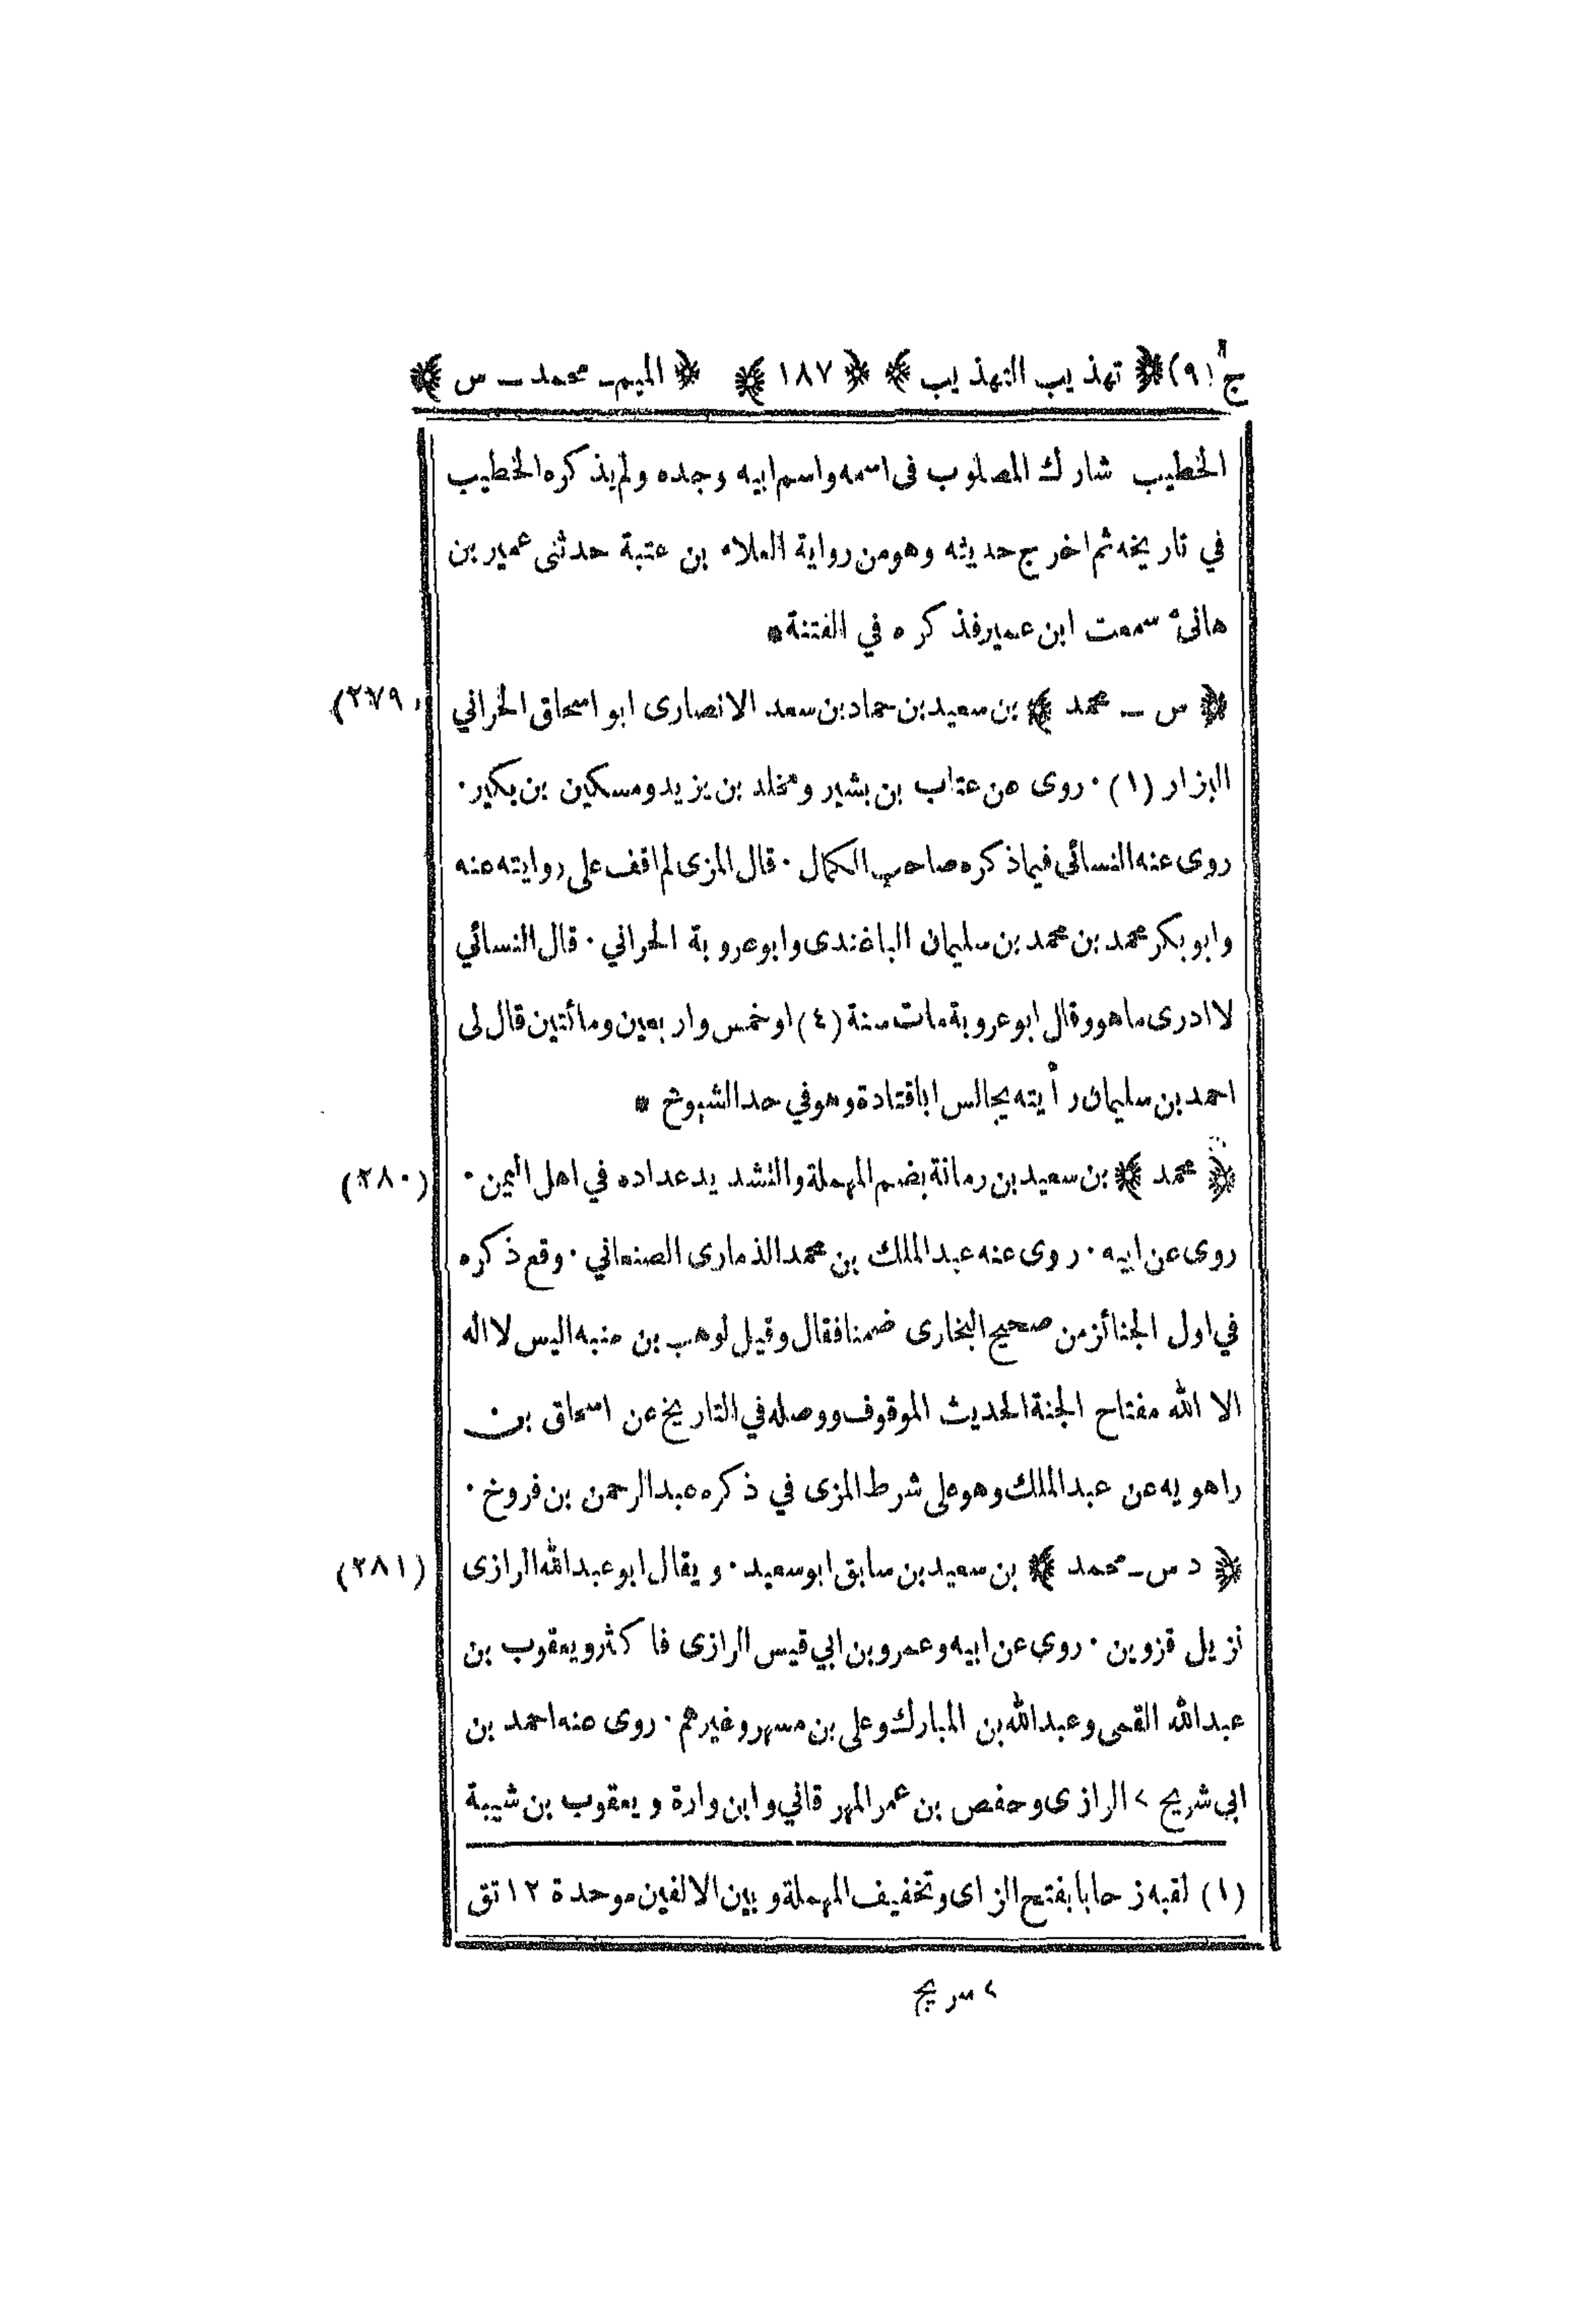 ج (٩) ﴿ تهذيب التهذيب ﴾ ﴿ ١٨٧ ﴾ ﴿ الميم - محمد - س ﴾
الخطيب شارك المصلوب فى اسمه واسم ابيه وجده ولم يذكره الخطيب
في تاريخه ثم اخرج حديثه وهو من رواية العلاء بن عتبة حدثنى عمير بن
هانئ سمعت ابن عمير فذكره في الفتنة *
﴿ س - محمد ﴾ بن سعيد بن حماد بن سعد الانصارى ابو اسحاق الحراني (٢٧٩)
البزار (١) · روى عن عتاب بن بشير ومخلد بن يزيد ومسكين بن بكير ·
روى عنه النسائي فيما ذكره صاحب الكمال · قال المزى لم اقف على روايته عنه
وابو بكر محمد بن محمد بن سليمان الباغندى وابو عروبة الحراني · قال النسائي
لا ادرى ما هو وقال ابو عروبة مات سنة (٤) او خمس واربعين ومائتين قال لى
احمد بن سليمان رأيته يجالس ابا قتادة وهو في حد الشيوخ *
﴿ محمد ﴾ بن سعيد بن رمانة بضم المهملة والتشديد عداده في اهل اليمن · (٢٨٠)
روى عن ابيه · روى عنه عبد الملك بن محمد الذمارى الصنعاني · وقع ذكره
في اول الجنائز من صحيح البخارى ضمنا فقال وقيل لوهب بن منبه اليس لا اله
الا الله مفتاح الجنة الحديث الموقوف ووصله في التاريخ عن اسحاق بن
راهويه عن عبد الملك وهو على شرط المزى في ذكره عبد الرحمن بن فروخ ·
﴿ د س - محمد ﴾ بن سعيد بن سابق ابو سعيد · ويقال ابو عبد الله الرازى (٢٨١)
نزيل قزوين · روى عن ابيه وعمرو بن ابي قيس الرازى فاكثر ويعقوب بن
عبد الله القمى وعبد الله بن المبارك وعلى بن مسهر وغيرهم · روى عنه احمد بن
ابي شريح > الرازى وحفص بن عمر المهرقاني وابن وارة ويعقوب بن شيبة
(١) لقبه زحابا بفتح الزاى وتخفيف المهملة وبين الالفين موحدة ١٢ تق
> سريج